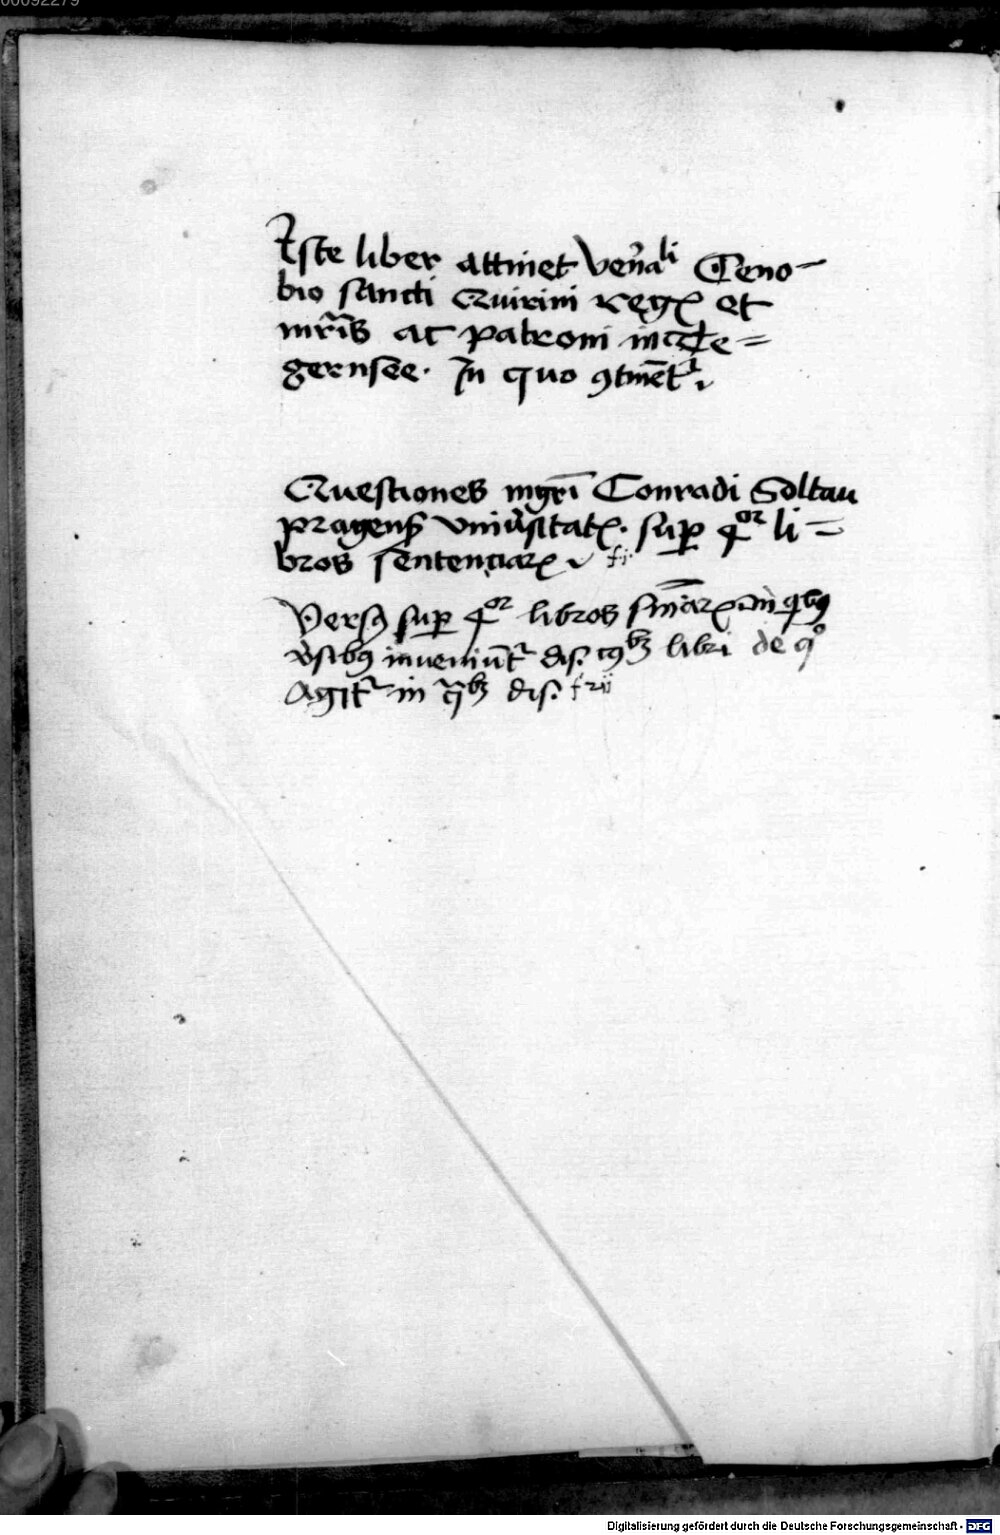 00092279
Iste liber attinet Ven̄ali Ceno-
bio sancti Quirini Regꝭ et
mr̄is ac patroni in Te=
gernsee. In quo ꝯtinēt᷑
Questiones mgrī Conradi Soltau
pragensꝭ vniu̾sitatꝭ. sup̱ 4or li=
bros sentenciarꝝ fi
Versꝰ sup̱ 4or libros sn̄iarꝝ in qibꝯ
v̾sibꝯ inueniūt᷑ dis. libri de qo
Agit᷑ in dis.
Digitalisierung gefördert durch die Deutsche Forschungsgemeinschaft - DFG